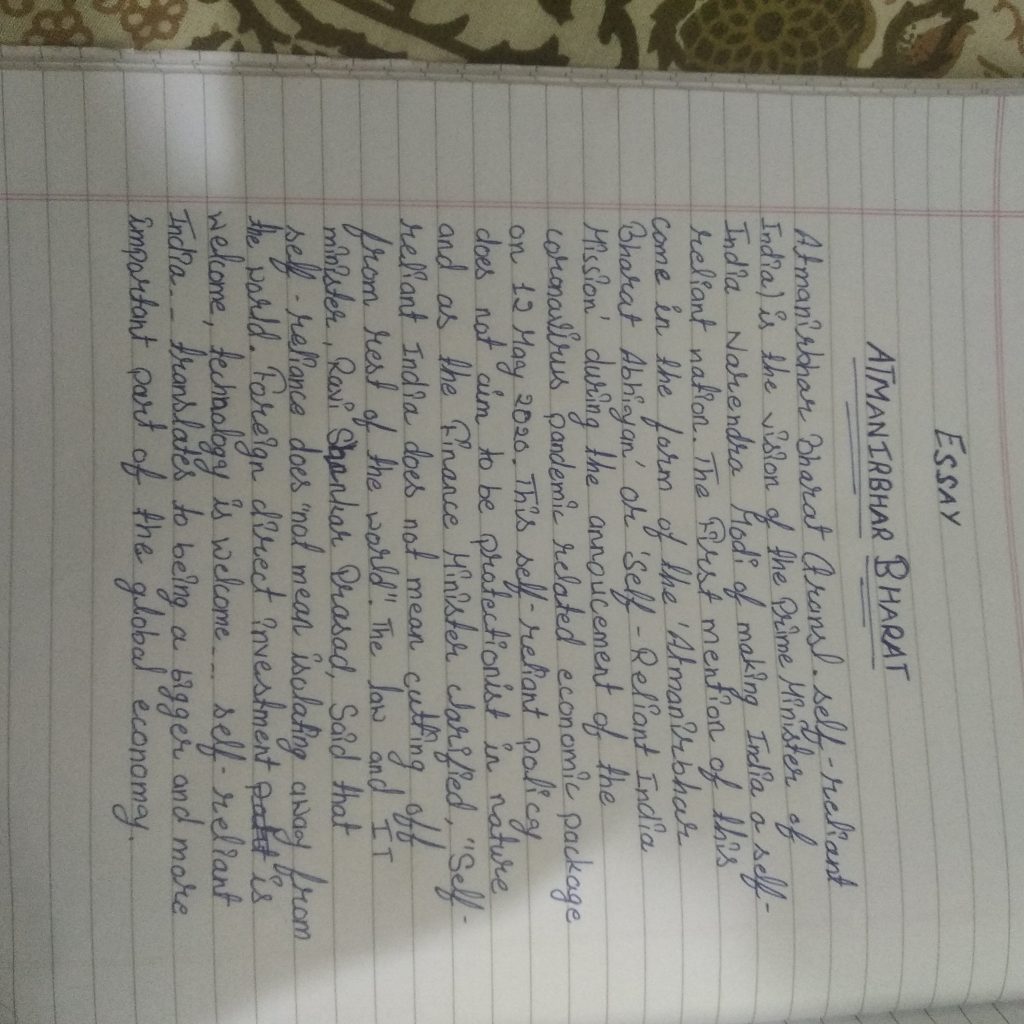 ESSAY
ATMANIRBHAR BHARAT
Atmanirbhar Bharat (trans. self-reliant
India) is the vision of the Prime Minister of
India Narendra Modi of making India a self-
reliant nation. The first mention of this
come in the form of the 'Atmanirbhar
Bharat Abhiyan' or 'Self-Reliant India
Mission' during the annoucement of the
coronavirus pandemic related economic package
on 12 May 2020. This self-reliant policy
does not aim to be protectionist in nature
and as the Finance Minister clarified, "Self-
reliant India does not mean cutting off
from rest of the world". The law and IT
minister, Ravi Shankar Prasad, Said that
self-reliance does "not mean isolating away from
the world. Foreign direct investment is
welcome, technology is welcome... self-reliant
India... translates to being a bigger and more
important part of the global economy.